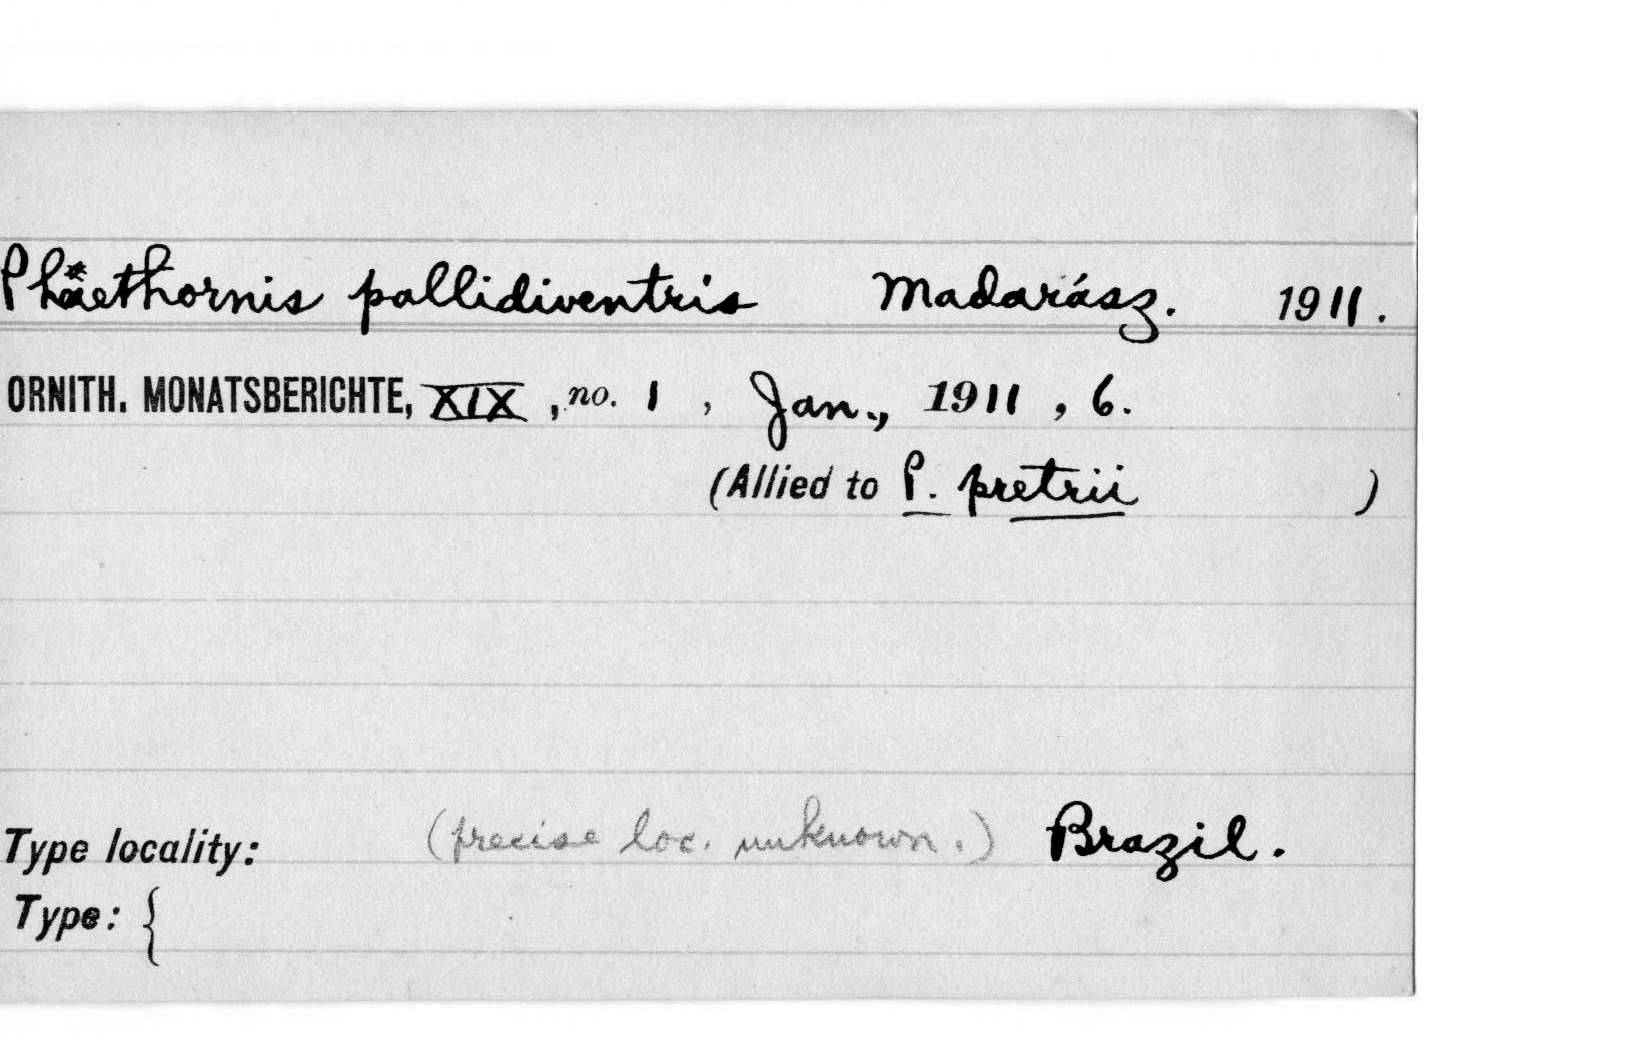 Phäethornis pallidiventris Madarász. 1911.
ORNITH. MONATSBERICHTE, XIX, no. 1, Jan., 1911, 6.
(Allied to P. pretrii )
Type locality: (precise loc. unknown.) Brazil.
Type: {